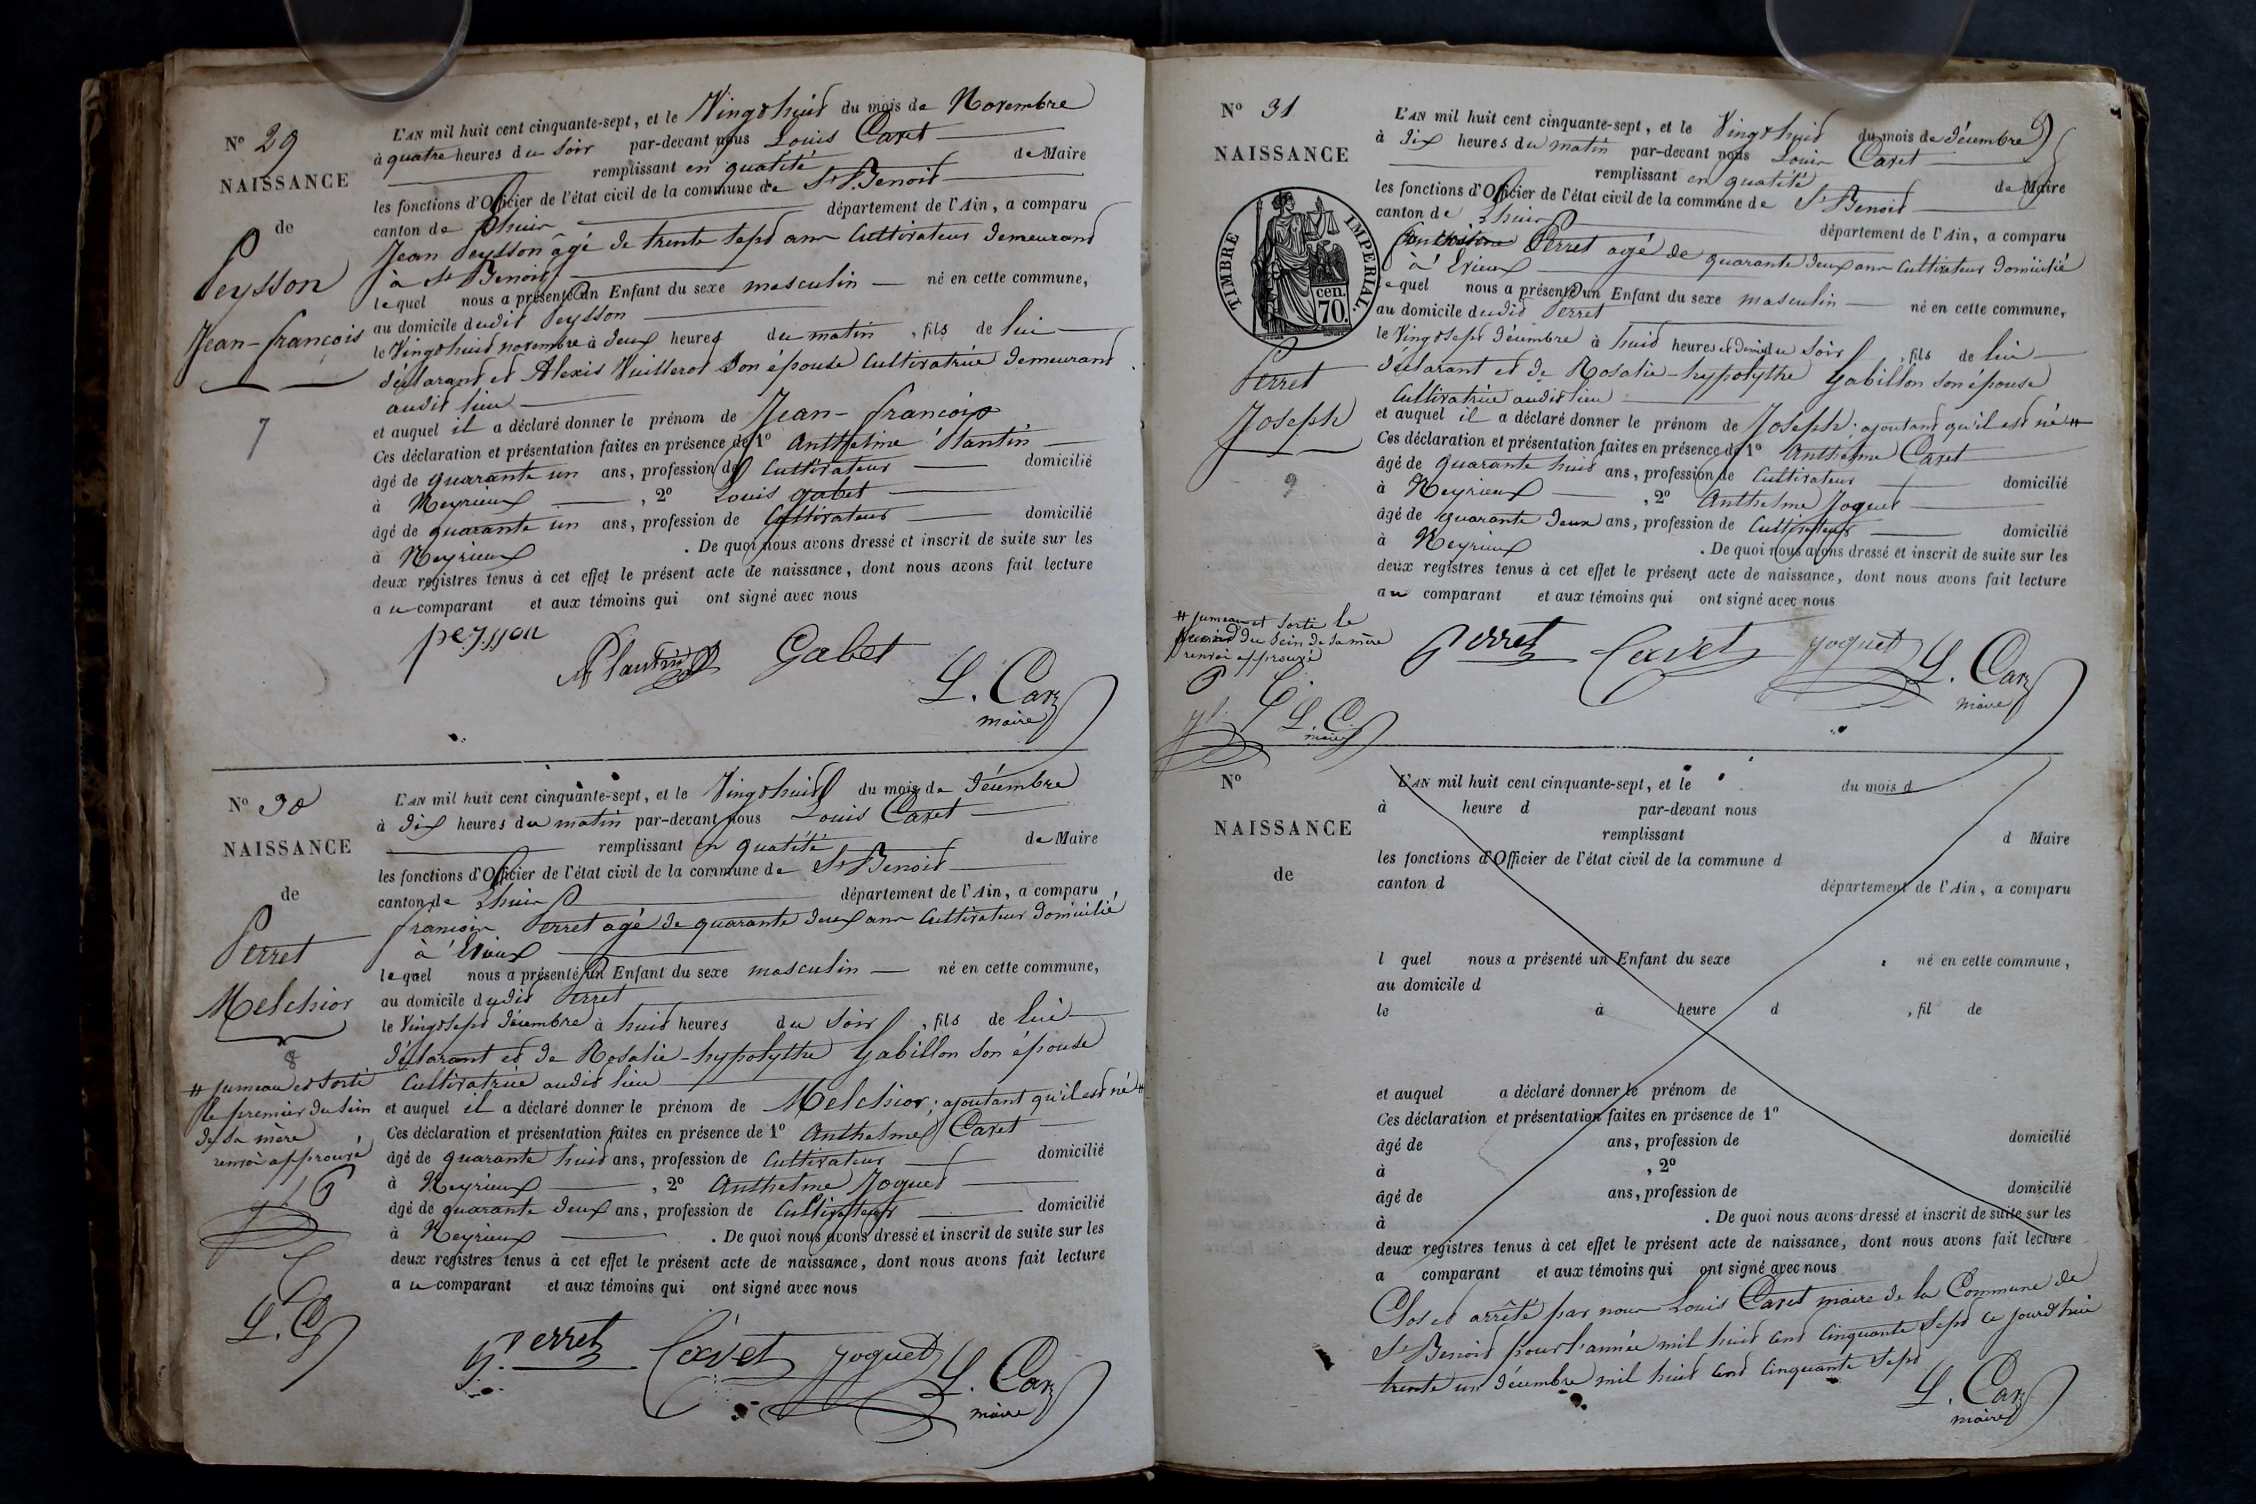 N° 29
NAISSANCE
de
Peysson
Jean-françois
7
L'AN mil huit cent cinquante-sept, et le Vingt huit du mois de Novembre
à quatre heures du soir par-devant nous Louis Cavet
remplissant en qualité de Maire
les fonctions d'Officier de l'état civil de la commune de St Benoit
canton de Lhuis département de l'Ain, a comparu
Jean Peysson âgé de trente sept ans Cultivateur demeurant
à St Benoit
lequel nous a présenté un Enfant du sexe masculin né en cette commune,
au domicile dudit Peysson
le Vingt huit novembre à deux heures du matin, fils de lui
déclarant et Alexis Vuillerot son épouse Cultivatrice demeurant
audit lieu
et auquel il a déclaré donner le prénom de Jean-françois
Ces déclaration et présentation faites en présence de 1° Anthelme Plantin
âgé de quarante un ans, profession de Cultivateur domicilié
à Meyrieux, 2° Louis gabet
âgé de quarante un ans, profession de Cultivateur domicilié
à Meyrieux. De quoi nous avons dressé et inscrit de suite sur les
deux registres tenus à cet effet le présent acte de naissance, dont nous avons fait lecture
au comparant et aux témoins qui ont signé avec nous
peysson
Plantin
Gabet
L. Cavet
maire
N° 30
NAISSANCE
de
Perret
Melchior
8
# jumeau et sorti
le premier du sein
de sa mère
renvoi approuvé
L. C.
L'AN mil huit cent cinquante-sept, et le Vingt huit du mois de décembre
à dix heures du matin par-devant nous Louis Cavet
remplissant en qualité de Maire
les fonctions d'Officier de l'état civil de la commune de St Benoit
canton de Lhuis département de l'Ain, a comparu
françois Perret agé de quarante deux ans Cultivateur domicilié
à Evieux
lequel nous a présenté un Enfant du sexe masculin né en cette commune,
au domicile dudit Perret
le Vingt sept décembre à huit heures du soir, fils de lui
déclarant et de Rosalie-hypolythe Gabillon son épouse
Cultivatrice audit lieu
et auquel il a déclaré donner le prénom de Melchior; ajoutant qu'il est né #
Ces déclaration et présentation faites en présence de 1° Anthelme Cavet
âgé de quarante huit ans, profession de Cultivateur domicilié
à Meyrieux, 2° Anthelme Joguet
âgé de quarante deux ans, profession de Cultivateur domicilié
à Meyrieux. De quoi nous avons dressé et inscrit de suite sur les
deux registres tenus à cet effet le présent acte de naissance, dont nous avons fait lecture
au comparant et aux témoins qui ont signé avec nous
Perret
Cavet
Joguet
L. Cavet
maire
N° 31
NAISSANCE
TIMBRE IMPERIAL
cen.
70.
Perret
Joseph
9
# jumeau et sorti le
second du sein de sa mère
renvoi approuvé
L. C.
maire
L'AN mil huit cent cinquante-sept, et le Vingt huit du mois de décembre
à dix heures du matin par-devant nous Louis Cavet
remplissant en qualité de Maire
les fonctions d'Officier de l'état civil de la commune de St Benoit
canton de Lhuis département de l'Ain, a comparu
Perret agé de quarante deux ans Cultivateur domicilié
à Evieux
lequel nous a présenté un Enfant du sexe masculin né en cette commune,
au domicile dudit Perret
le Vingt sept décembre à huit heures et demie du soir, fils de lui
déclarant et de Rosalie-hypolythe Gabillon son épouse
Cultivatrice audit lieu
et auquel il a déclaré donner le prénom de Joseph; ajoutant qu'il est né #
Ces déclaration et présentation faites en présence de 1° Anthelme Cavet
âgé de quarante huit ans, profession de Cultivateur domicilié
à Meyrieux, 2° Anthelme Joguet
âgé de quarante deux ans, profession de Cultivateur domicilié
à Meyrieux. De quoi nous avons dressé et inscrit de suite sur les
deux registres tenus à cet effet le présent acte de naissance, dont nous avons fait lecture
au comparant et aux témoins qui ont signé avec nous
Perret
Cavet
Joguet
L. Cavet
maire
N°
NAISSANCE
de
L'AN mil huit cent cinquante-sept, et le du mois d
à heure d par-devant nous
remplissant d Maire
les fonctions d'Officier de l'état civil de la commune d
canton d département de l'Ain, a comparu
l quel nous a présenté un Enfant du sexe né en cette commune,
au domicile d
le à heure d , fil de
et auquel a déclaré donner le prénom de
Ces déclaration et présentation faites en présence de 1°
âgé de ans, profession de domicilié
à , 2°
âgé de ans, profession de domicilié
à . De quoi nous avons dressé et inscrit de suite sur les
deux registres tenus à cet effet le présent acte de naissance, dont nous avons fait lecture
a comparant et aux témoins qui ont signé avec nous
Clos et arrêté par nous Louis Cavet maire de la Commune de
St Benoit pour l'année mil huit cent cinquante sept ce jourd'hui
trente un décembre mil huit cent cinquante sept
L. Cavet
maire